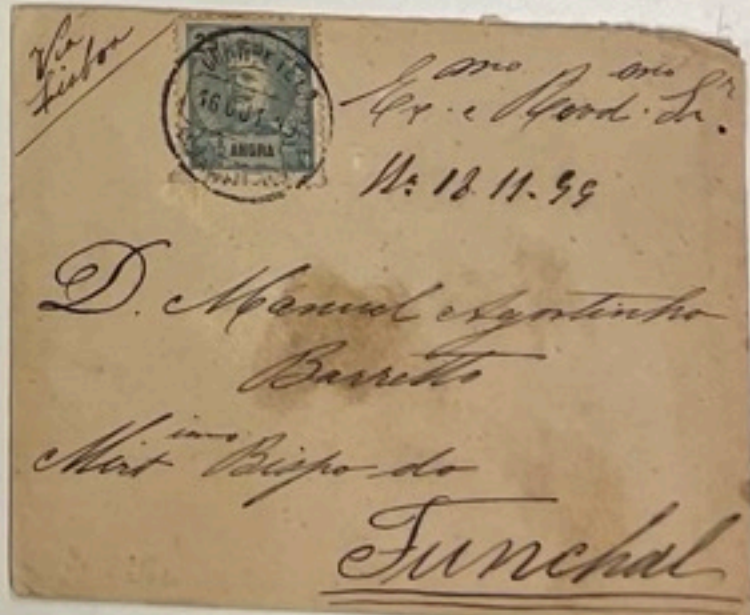 Via
Lisboa
ANGRA
16 OUT
Ex.mo e Revd.mo Sr.
18.11.99
D. Manuel Agostinho
Barretto
Bispo do
Funchal